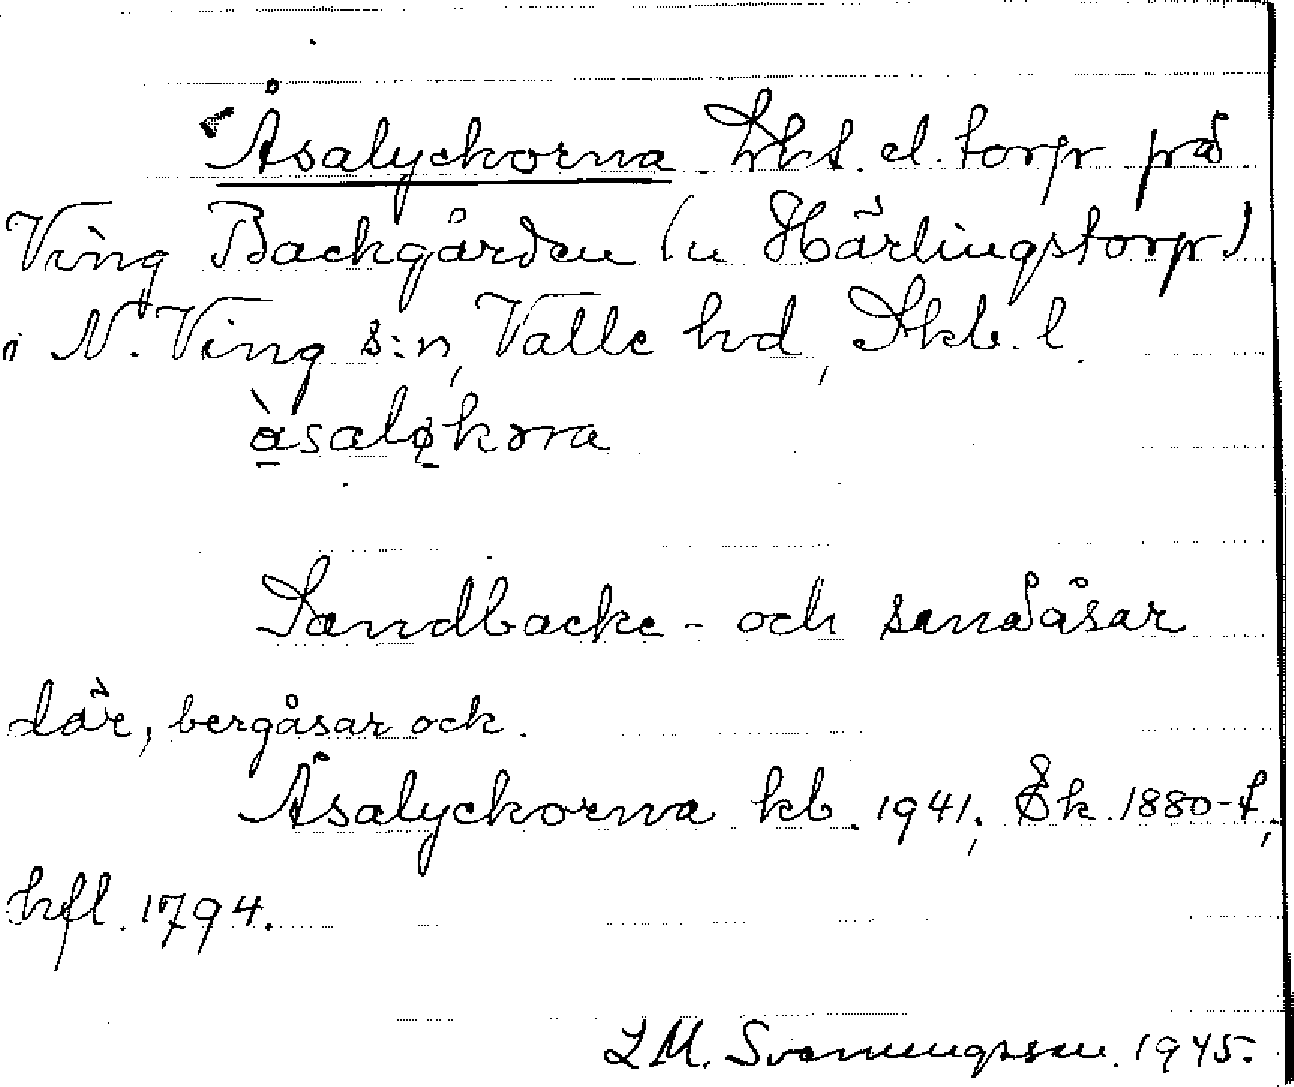 Åsalyckorna lht. el. torp på
Ving Backgården (u Härlingstorp)
i N. Ving s:n, Valle hd, Skb. l.
å̀saløkɷrna
Sandbacke- och sandåsar
där, bergåsar ock.
Åsalyckorna kb. 1941; Ek. 1880-t,
hfl. 1794.
L M. Svenungsson. 1945.